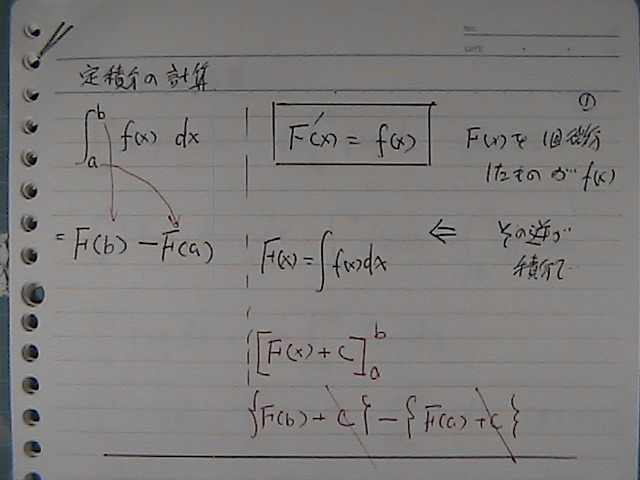 NO.
DATE
定積分の計算
①
∫ₐᵇ f(x) dx
F'(x) = f(x)
F(x)を1回微分
したものがf(x)
= F(b) − F(a)
F(x) = ∫f(x)dx
⇐ その逆が
積分で
[F(x) + C]ₐᵇ
{F(b) + C} − {F(a) + C}